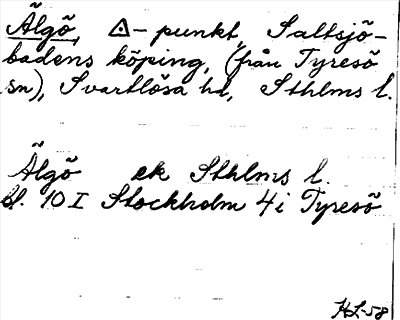 Älgö, △-punkt, Saltsjö-
badens köping, (från Tyresö
sn), Svartlösa hd, Sthlms l.
Älgö ek Sthlms l.
bl. 10 I Stockholm 4i Tyresö
HL-58